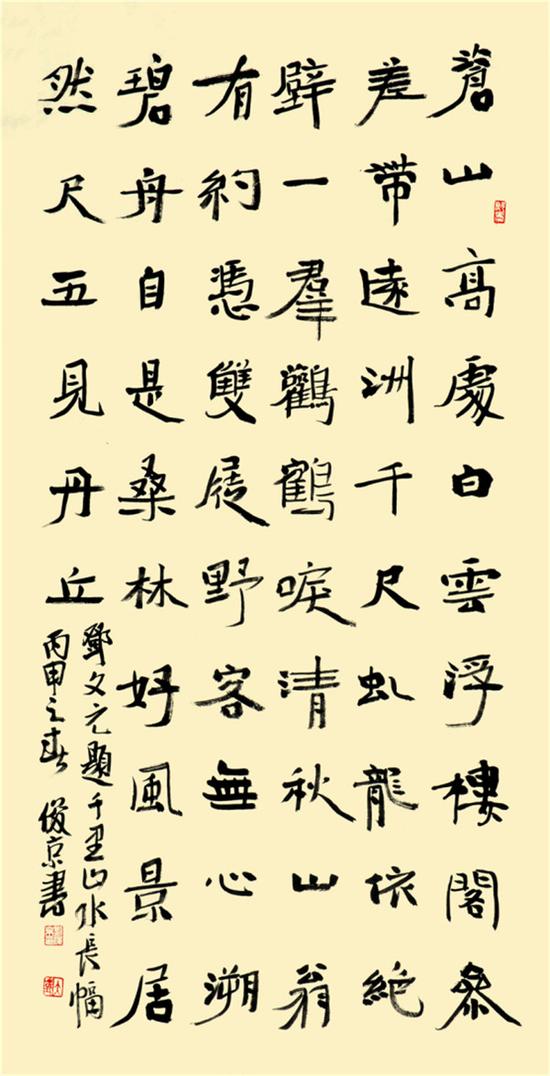 蒼山高處白雲浮樓閣參
差帶遠洲千尺虬龍依絶
壁一羣鸛鶴唳清秋山翁
有約憑雙屐野客無心溯
碧舟自是桑林好風景居
然尺五見丹丘
鄧文元題千里山水長幅
丙申之春 俊京書